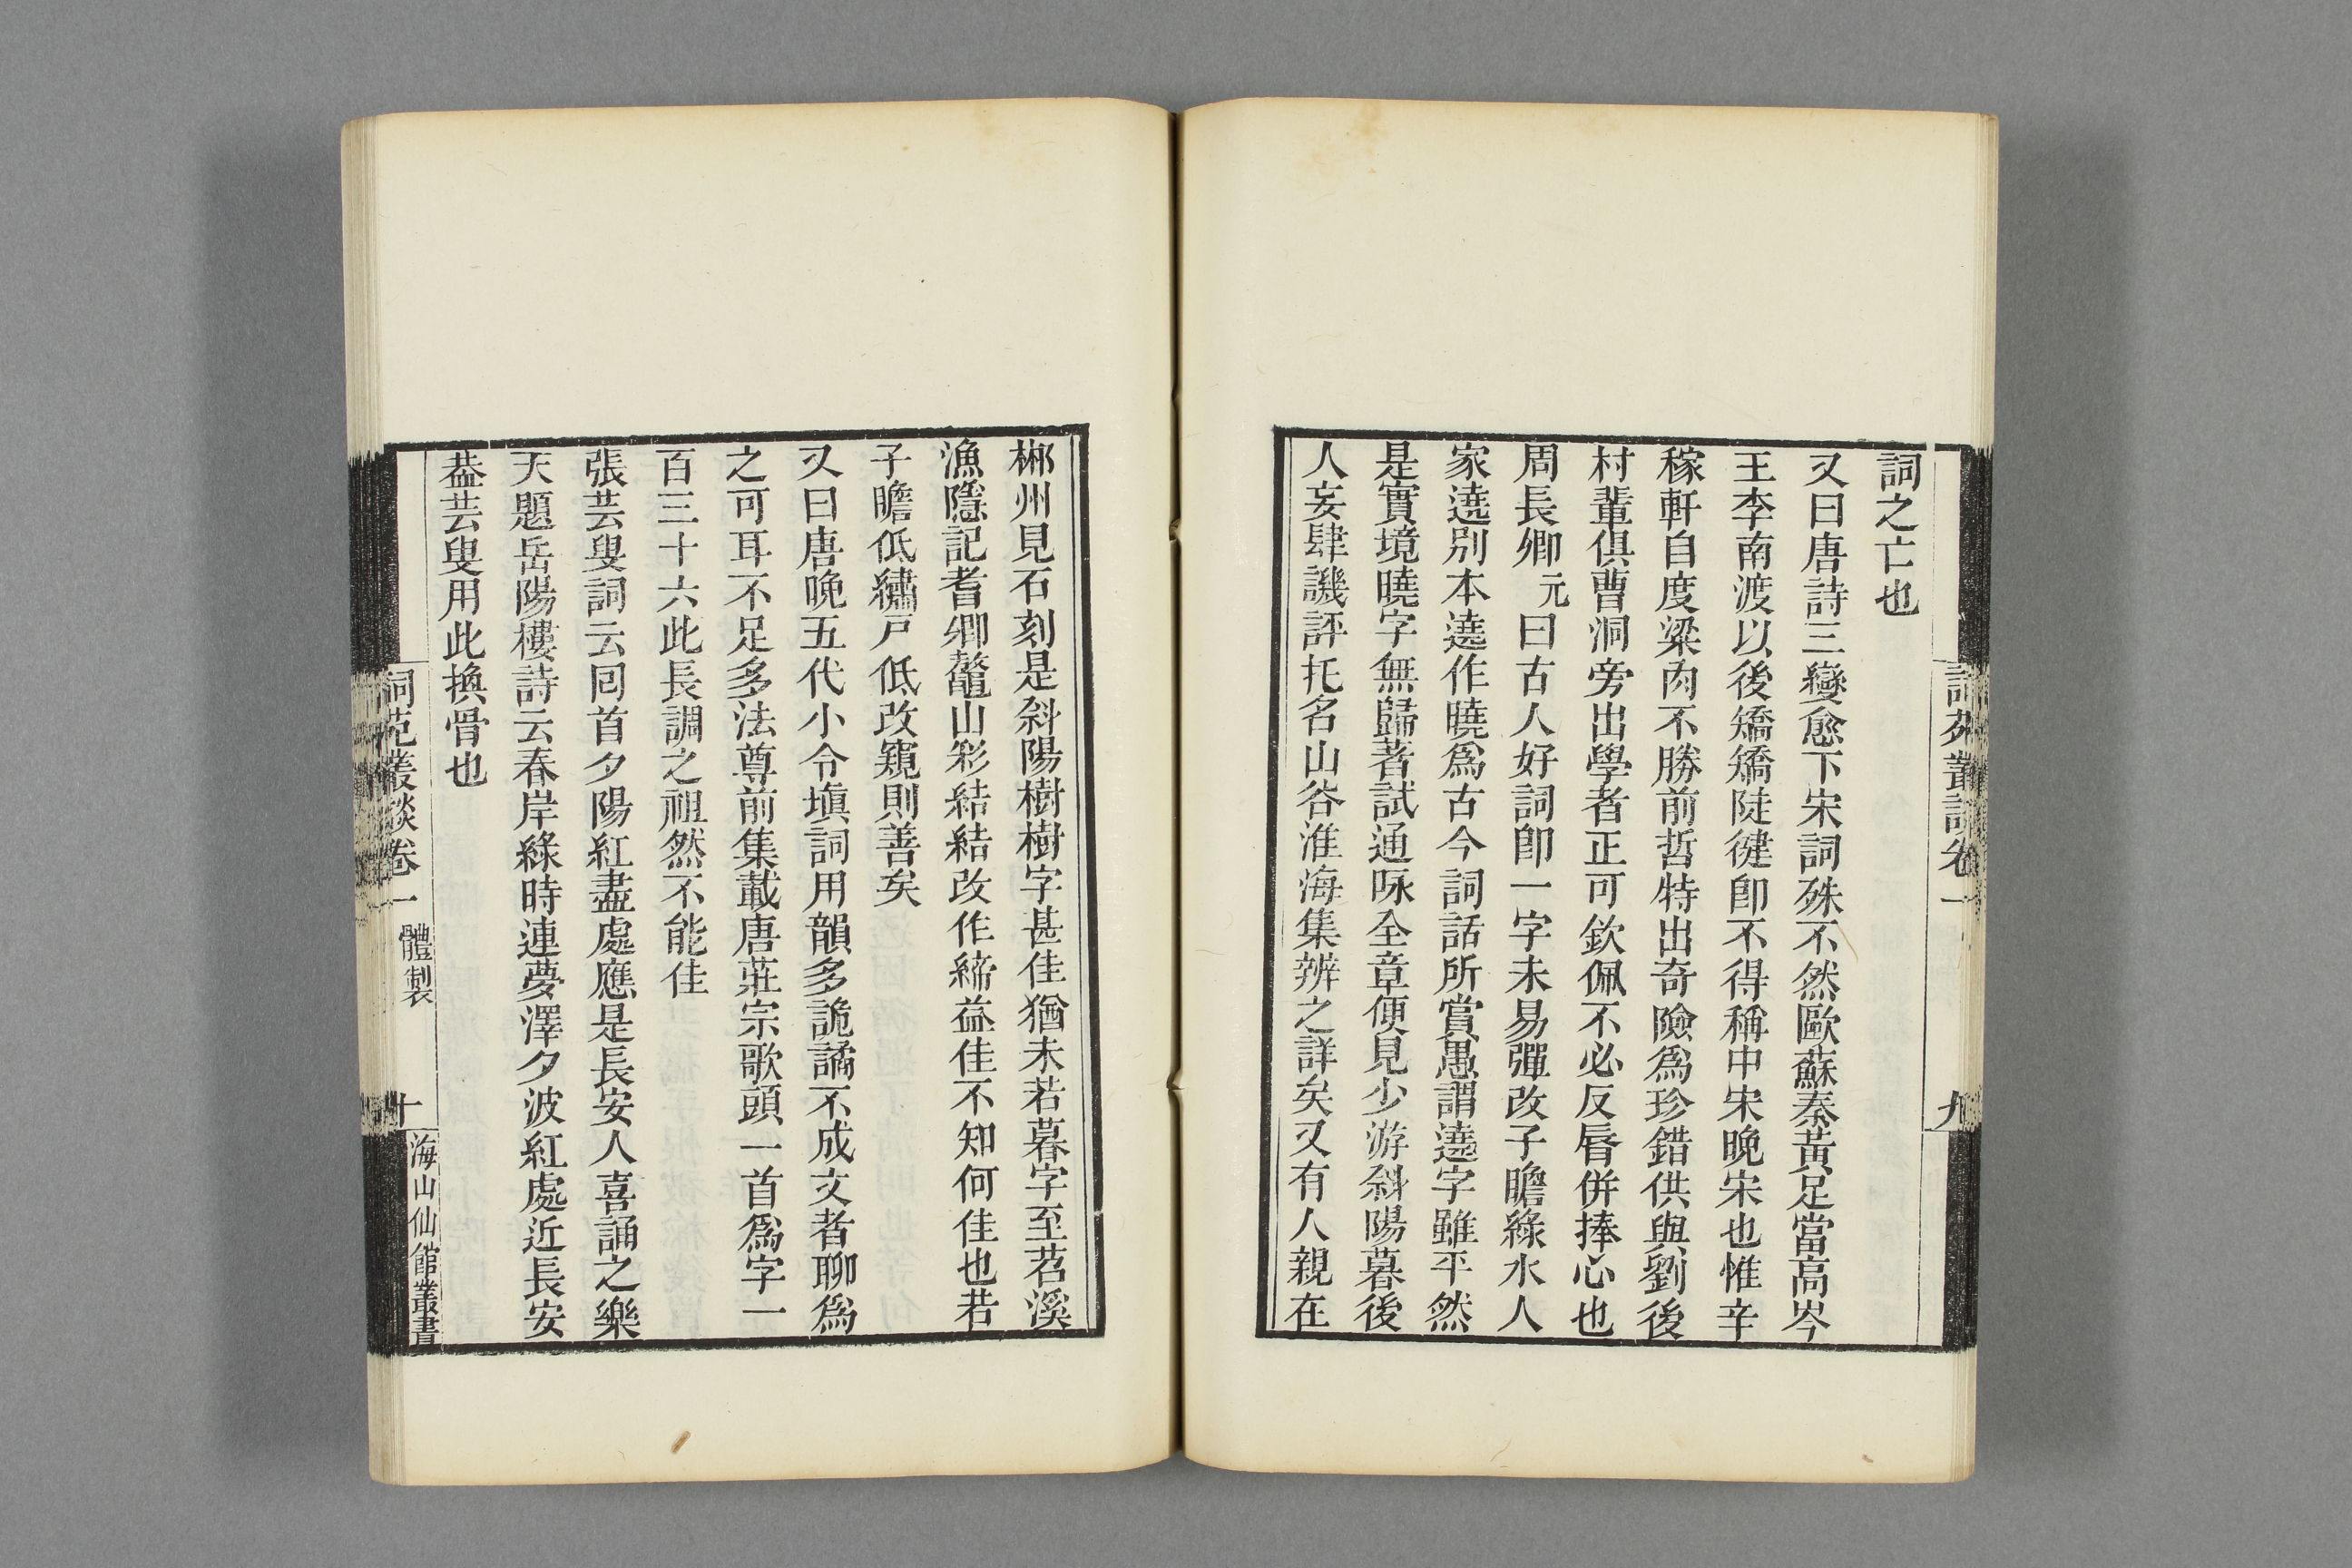 詞之亡也
又曰唐詩三變愈下宋詞殊不然歐蘇秦黃足當高岑
王李南渡以後矯矯陡健卽不得稱中宋晚宋也惟辛
稼軒自度粱肉不勝前哲特出奇險爲珍錯供與劉後
村輩俱曹洞旁出學者正可欽佩不必反脣併捧心也
周長卿元曰古人好詞卽一字未易彈改子瞻綠水人
家遶別本遶作曉爲古今詞話所賞愚謂遶字雖平然
是實境曉字無歸著試通咏全章便見少游斜陽暮後
人妄肆譏評托名山谷淮海集辨之詳矣又有人親在
詞苑叢談卷一
九
郴州見石刻是斜陽樹樹字甚佳猶未若暮字至苕溪
漁隱記耆卿鼇山彩結結改作締益佳不知何佳也若
子瞻低繡戸低改窺則善矣
又曰唐晚五代小令塡詞用韻多詭譎不成文者聊爲
之可耳不足多法尊前集載唐莊宗歌頭一首爲字一
百三十六此長調之祖然不能佳
張芸叟詞云囘首夕陽紅盡處應是長安人喜誦之樂
天題岳陽樓詩云春岸綠時連夢澤夕波紅處近長安
葢芸叟用此換骨也
詞苑叢談卷一 體製
十
海山仙館叢書